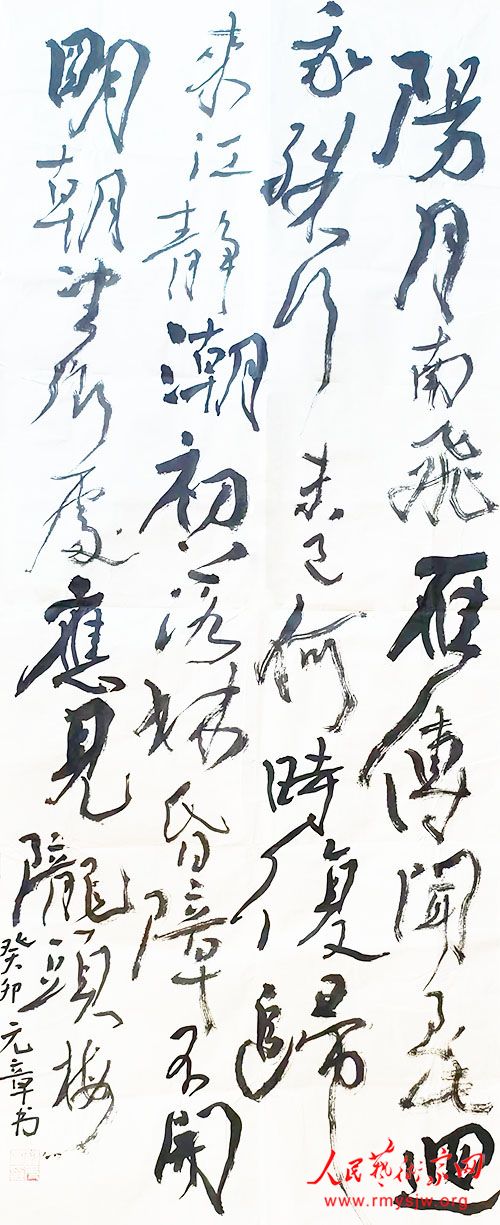 陽月南飛雁傳聞至此迴
我殊行未已何時復歸
來江静潮初落林昏障不開
明朝望鄉處應見隴頭梅
癸卯元章书
人民藝術家网
www.rmysjw.org